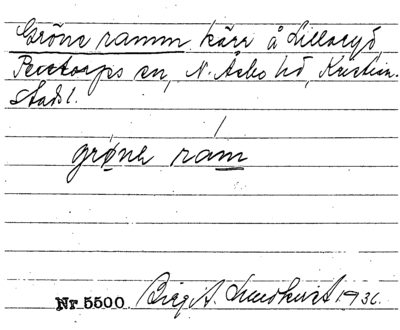 Gröne ramm kärr å Lillaryd,
Perstorps sn, N. Åsbo hd, Kristian-
stads l.
grønə ram
Nr 5500 Birgit Lundkvist 1931.